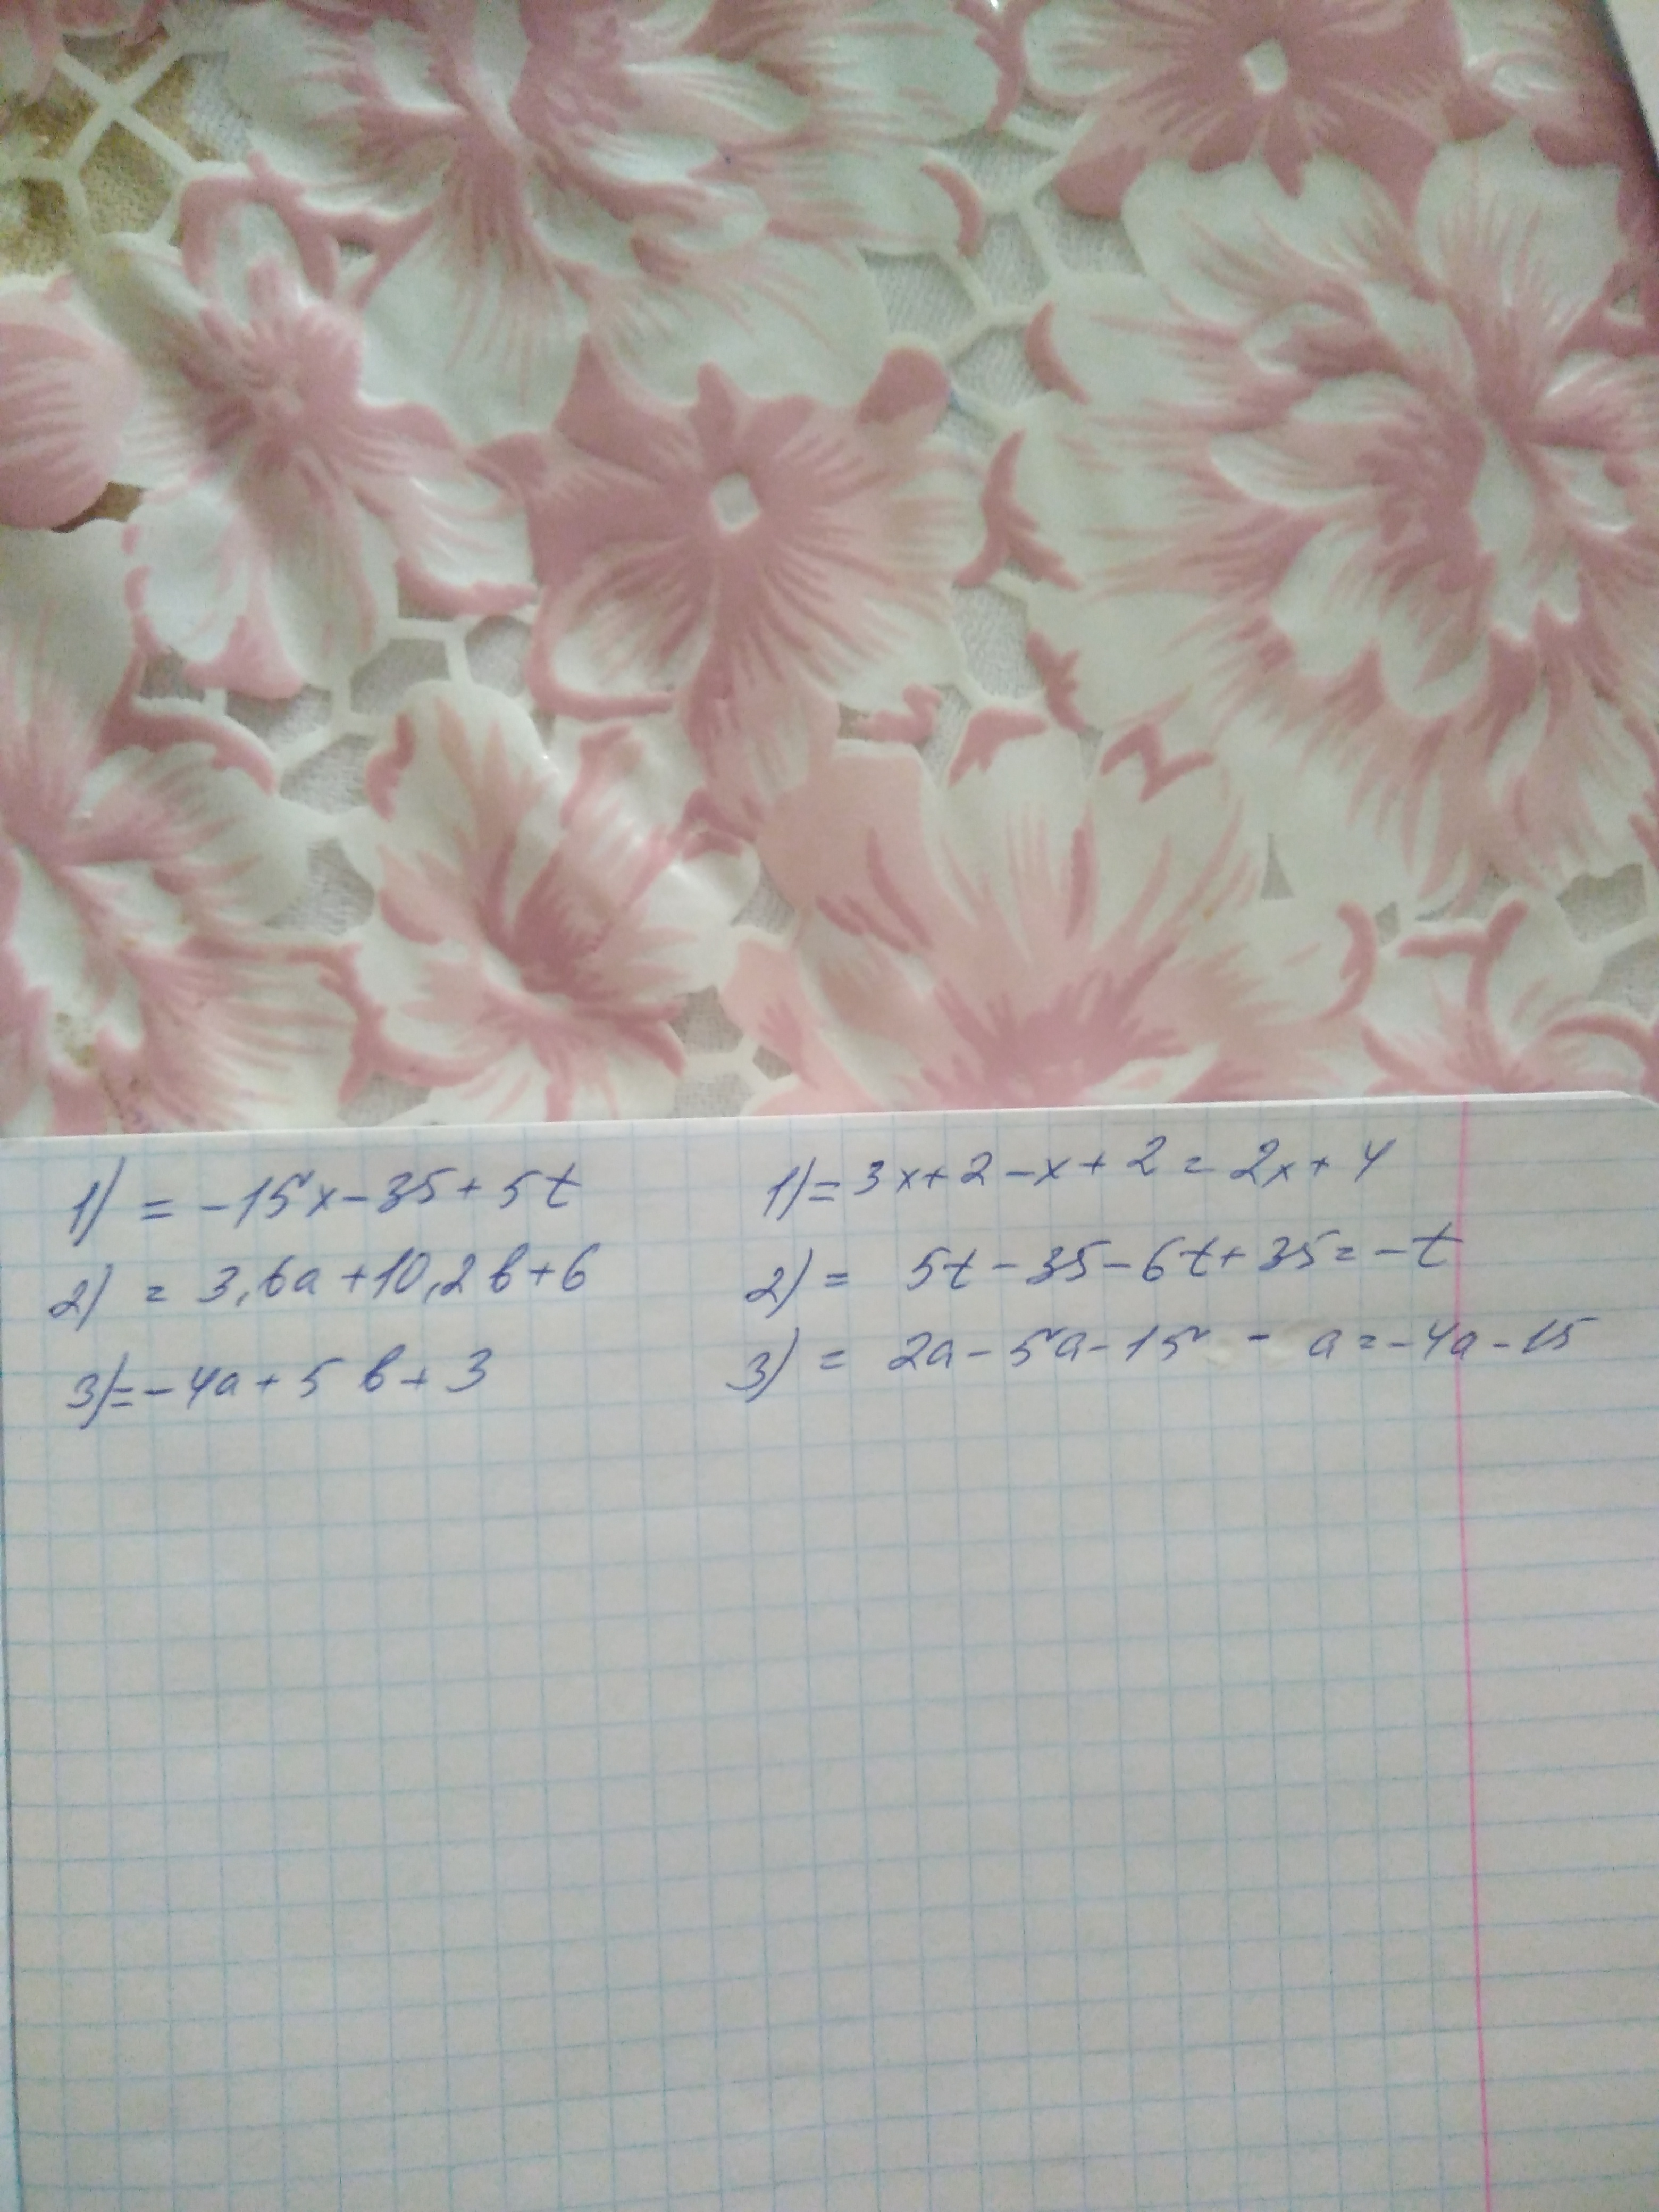 1) = -15x-35+5t
2) = 3,6a+10,2b+6
3)=-4a+5b+3
1)=3x+2-x+2=2x+4
2)= 5t-35-6t+35=-t
3)= 2a-5a-15 - a=-4a-15